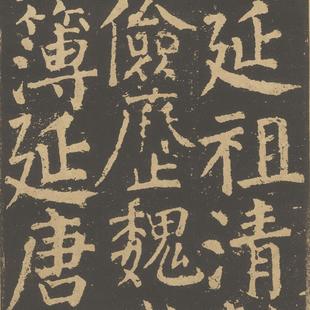 延祖清
儉歷魏
簿延唐